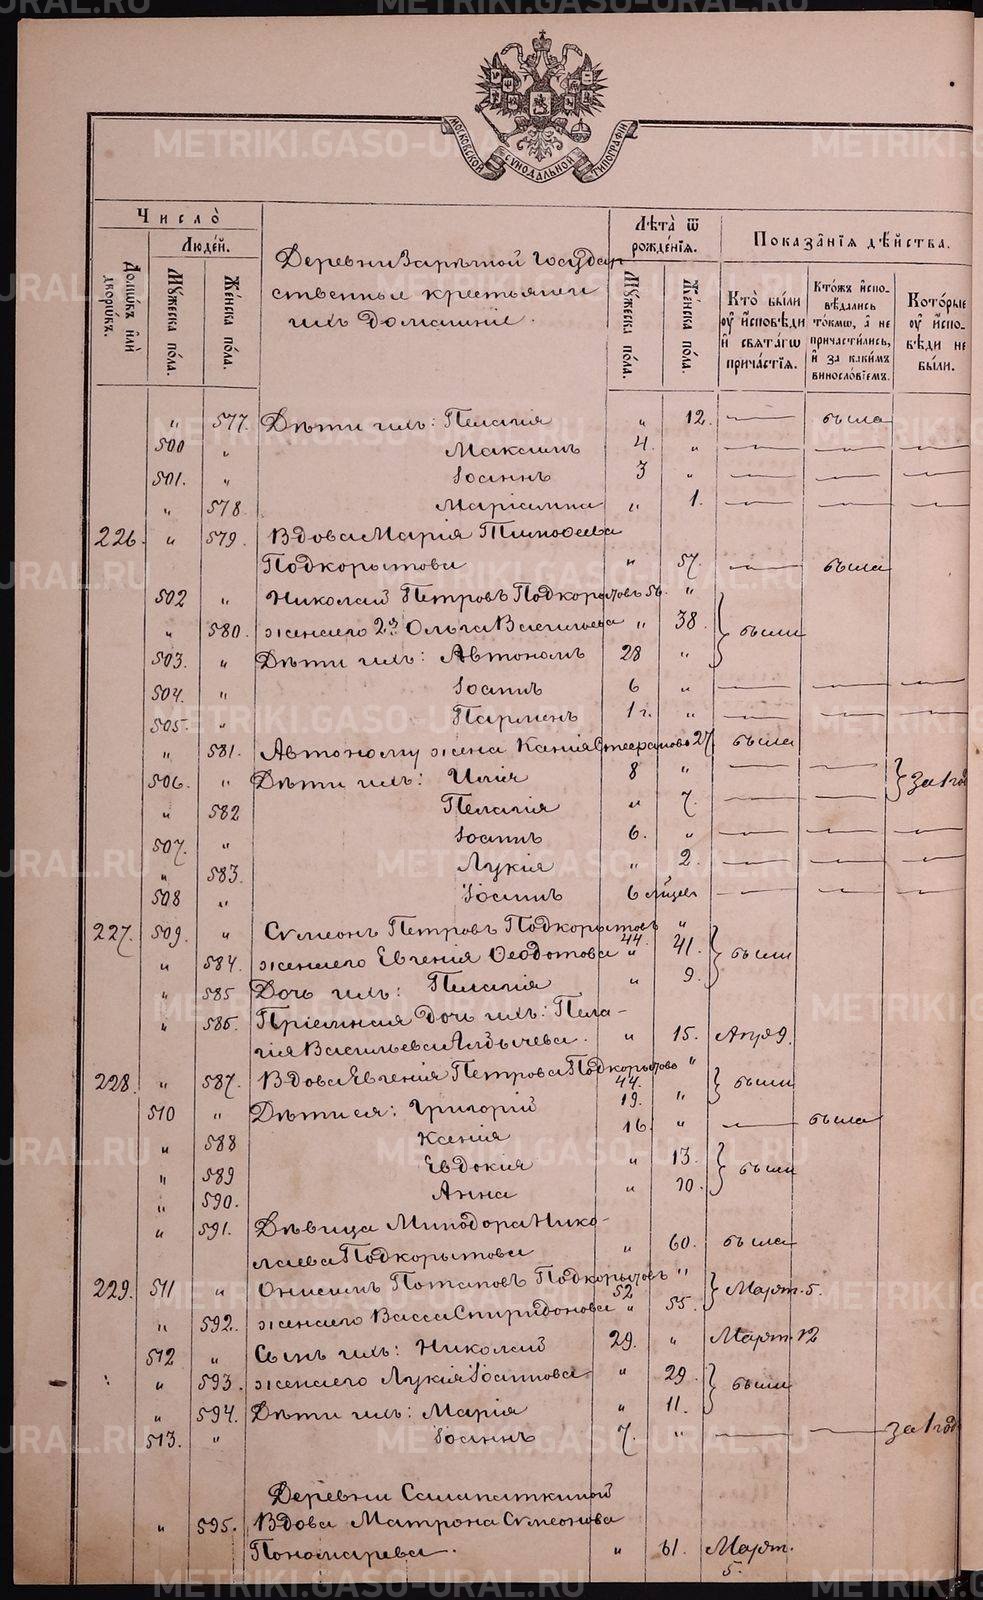 METRIKI.GASO-URAL.RU
МОСКОВСКОЙ СѴНОДАЛЬНОЙ ТИПОГРАФІИ
Число̀
Людéй.
Домѡ́въ и҆лѝ дворѡ́въ.
Мꙋ́жеска по́ла.
Же́нска по́ла.
Деревни Зарѣчной Государ
ственные крестьяне и
ихъ домашніе.
Лѣ́та ѿ рожде́нїѧ.
Мꙋ́жеска по́ла.
Же́нска по́ла.
Показа̑нїѧ дѣ́йства.
Кто̀ бы́ли ᲂу҆ и҆сповѣ́ди и҆ свѧта́гѡ прича́стїѧ.
Кто́жъ и҆спо-вѣ́дались то́кмѡ, а҆ не причасти́лись, и҆ за каки́мъ виносло́вїемъ.
Кото́рые ᲂу҆ и҆спо-вѣ́ди не бы́ли.
" 577. Дѣти ихъ: Пелагія " 12. — была
500 " Максимъ 4. " — — —
501. " Іоаннъ 3 " — — —
" 578. Маріамна " 1. — — —
226. " 579. Вдова Марія Тимоѳеева
Подкорытова " 57. — была
502 " Николай Петровъ Подкорытовъ 56. "
" 580. жена его 2я Ольга Васильева " 38. } были
503. " Дѣти ихъ: Автономъ 28 "
504. " Іоаннъ 6 " — — —
505. " Парменъ 1 г. " — — —
" 581. Автоному жена Ксенія Стефанова 27. была
506. " Дѣти ихъ: Илія 8 " — — } За 1 год
" 582 Пелагія " 7. — —
507. " Іоаннъ 6. " — — —
" 583. Лукія " 2. — — —
508 " Іоаннъ 6 мѣсец — — —
227. 509. " Сѵмеонъ Петровъ Подкорытовъ 44. "
" 584. жена его Евгенія Ѳеодотова " 41. } были
" 585 Дочь ихъ: Пелагія " 9.
" 586. Пріемная дочь ихъ: Пела-
гія Васильева " 15. Апр 9.
228. " 587. Вдова Евгенія Петрова Подкорытова 44. " } были
510 " Дѣти ея: Григорій 19. "
" 588 Ксенія 16. " — была
" 589 Евдокія " 13. } были
" 590. Анна " 10.
" 591. Дѣвица Минодора Нико-
лаева Подкорытова " 60. была
229. 511 " Онисимъ Потаповъ Подкорытовъ 52 " } Март. 5.
" 592. жена его Васса Спиридонова " 55.
512 " Сынъ ихъ: Николай 29. " Март. 12
" 593. жена его Лукія Іоаннова " 29. } были
" 594. Дѣти ихъ: Марія " 11.
513. " Іоаннъ 7. " — — За 1 год
Деревни
" 595. Вдова Матрона Сѵмеонова
Пономарева. " 61. Март.
5.